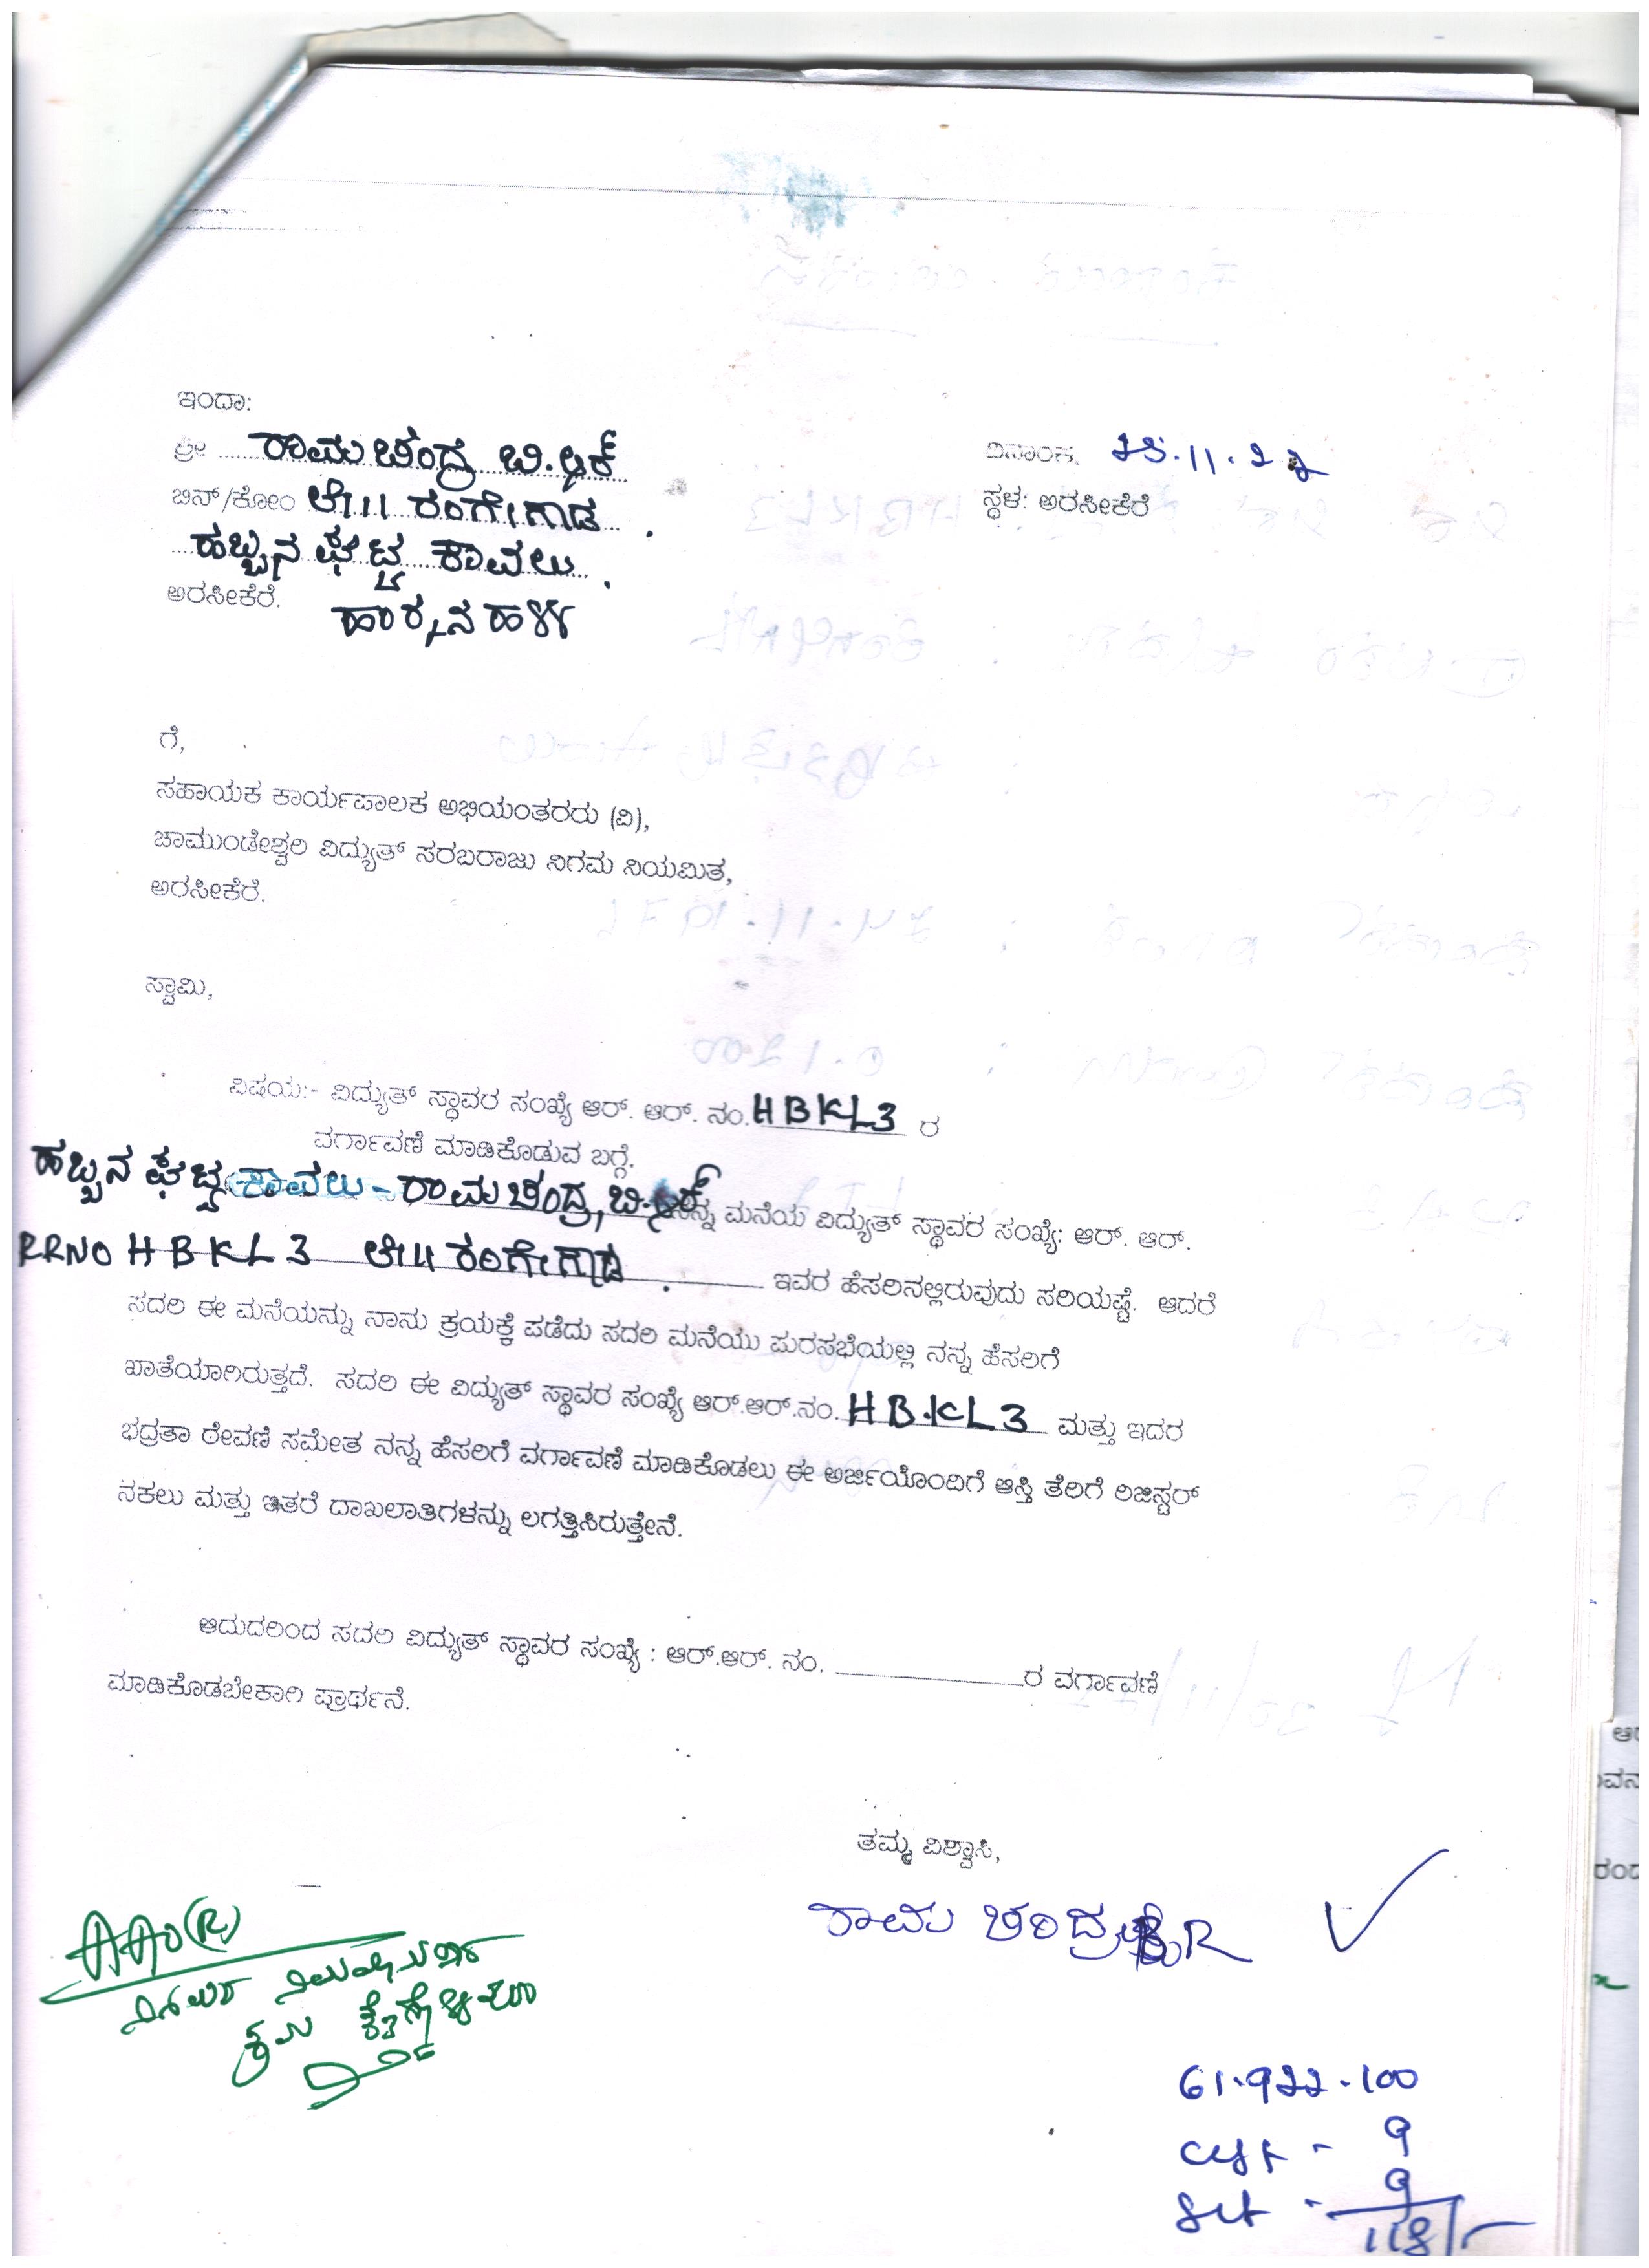 ಇಂದಾ:
ಶ್ರೀ ರಾಮಚಂದ್ರ ಬಿ.ಆರ್
ದಿನಾಂಕ: 25.11.22
ಬಿನ್/ಕೋಂ ಲೇ॥ ರಂಗೇಗೌಡ
ಸ್ಥಳ: ಅರಸೀಕೆರೆ
ಹಬ್ಬನ ಘಟ್ಟ ಕಾವಲು
ಅರಸೀಕೆರೆ.
ಹಾರ್‍ನಹಳ್ಳಿ
ಗೆ,
ಸಹಾಯಕ ಕಾರ್ಯಪಾಲಕ ಅಭಿಯಂತರರು (ವಿ),
ಚಾಮುಂಡೇಶ್ವರಿ ವಿದ್ಯುತ್ ಸರಬರಾಜು ನಿಗಮ ನಿಯಮಿತ,
ಅರಸೀಕೆರೆ.
ಸ್ವಾಮಿ,
ವಿಷಯ:- ವಿದ್ಯುತ್ ಸ್ಥಾವರ ಸಂಖ್ಯೆ ಆರ್. ಆರ್. ನಂ. HBKL3 ರ
ವರ್ಗಾವಣೆ ಮಾಡಿಕೊಡುವ ಬಗ್ಗೆ.
ಹಬ್ಬನ ಘಟ್ಟ ಕಾವಲು - ರಾಮಚಂದ್ರ, ಬಿ.ಆರ್ ನನ್ನ ಮನೆಯ ವಿದ್ಯುತ್ ಸ್ಥಾವರ ಸಂಖ್ಯೆ: ಆರ್. ಆರ್.
RRNO HBKL3 ಲೇ॥ ರಂಗೇಗೌಡ ಇವರ ಹೆಸರಿನಲ್ಲಿರುವುದು ಸರಿಯಷ್ಟೆ. ಆದರೆ
ಸದರಿ ಈ ಮನೆಯನ್ನು ನಾನು ಕ್ರಯಕ್ಕೆ ಪಡೆದು ಸದರಿ ಮನೆಯು ಪುರಸಭೆಯಲ್ಲಿ ನನ್ನ ಹೆಸರಿಗೆ
ಖಾತೆಯಾಗಿರುತ್ತದೆ. ಸದರಿ ಈ ವಿದ್ಯುತ್ ಸ್ಥಾವರ ಸಂಖ್ಯೆ ಆರ್.ಆರ್.ನಂ. HBKL3 ಮತ್ತು ಇದರ
ಭದ್ರತಾ ಠೇವಣಿ ಸಮೇತ ನನ್ನ ಹೆಸರಿಗೆ ವರ್ಗಾವಣೆ ಮಾಡಿಕೊಡಲು ಈ ಅರ್ಜಿಯೊಂದಿಗೆ ಆಸ್ತಿ ತೆರಿಗೆ ರಿಜಿಸ್ಟರ್
ನಕಲು ಮತ್ತು ಇತರೆ ದಾಖಲಾತಿಗಳನ್ನು ಲಗತ್ತಿಸಿರುತ್ತೇನೆ.
ಆದುದರಿಂದ ಸದರಿ ವಿದ್ಯುತ್ ಸ್ಥಾವರ ಸಂಖ್ಯೆ : ಆರ್.ಆರ್. ನಂ. ರ ವರ್ಗಾವಣೆ
ಮಾಡಿಕೊಡಬೇಕಾಗಿ ಪ್ರಾರ್ಥನೆ.
ತಮ್ಮ ವಿಶ್ವಾಸಿ,
ರಾಮಚಂದ್ರ BR
AAO(R)
61.922-100
9
9
118/-